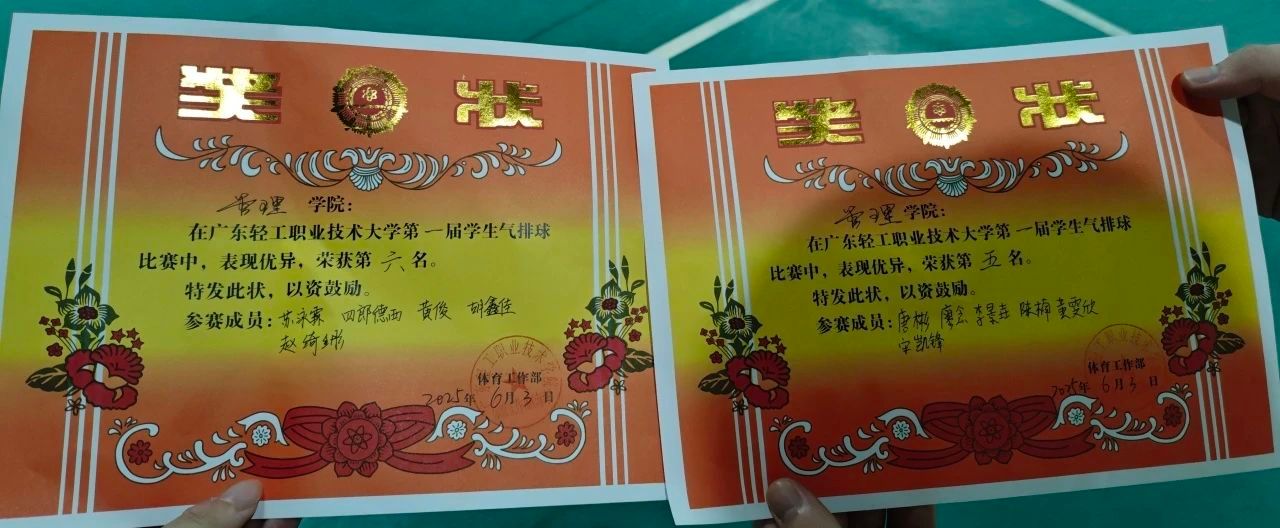 奖 状
管理 学院：
在广东轻工职业技术大学第一届学生气排球
比赛中，表现优异，荣获第 六 名。
特发此状，以资鼓励。
参赛成员：苏泳霖 四郎德西 黄俊 胡鑫佳
赵绮彤
体育工作部
2025年 6月 3 日
奖 状
管理 学院：
在广东轻工职业技术大学第一届学生气排球
比赛中，表现优异，荣获第 五 名。
特发此状，以资鼓励。
参赛成员：唐彬 陈楠 黄雯欣
宋凯锋
体育工作部
2025年 6月 3 日